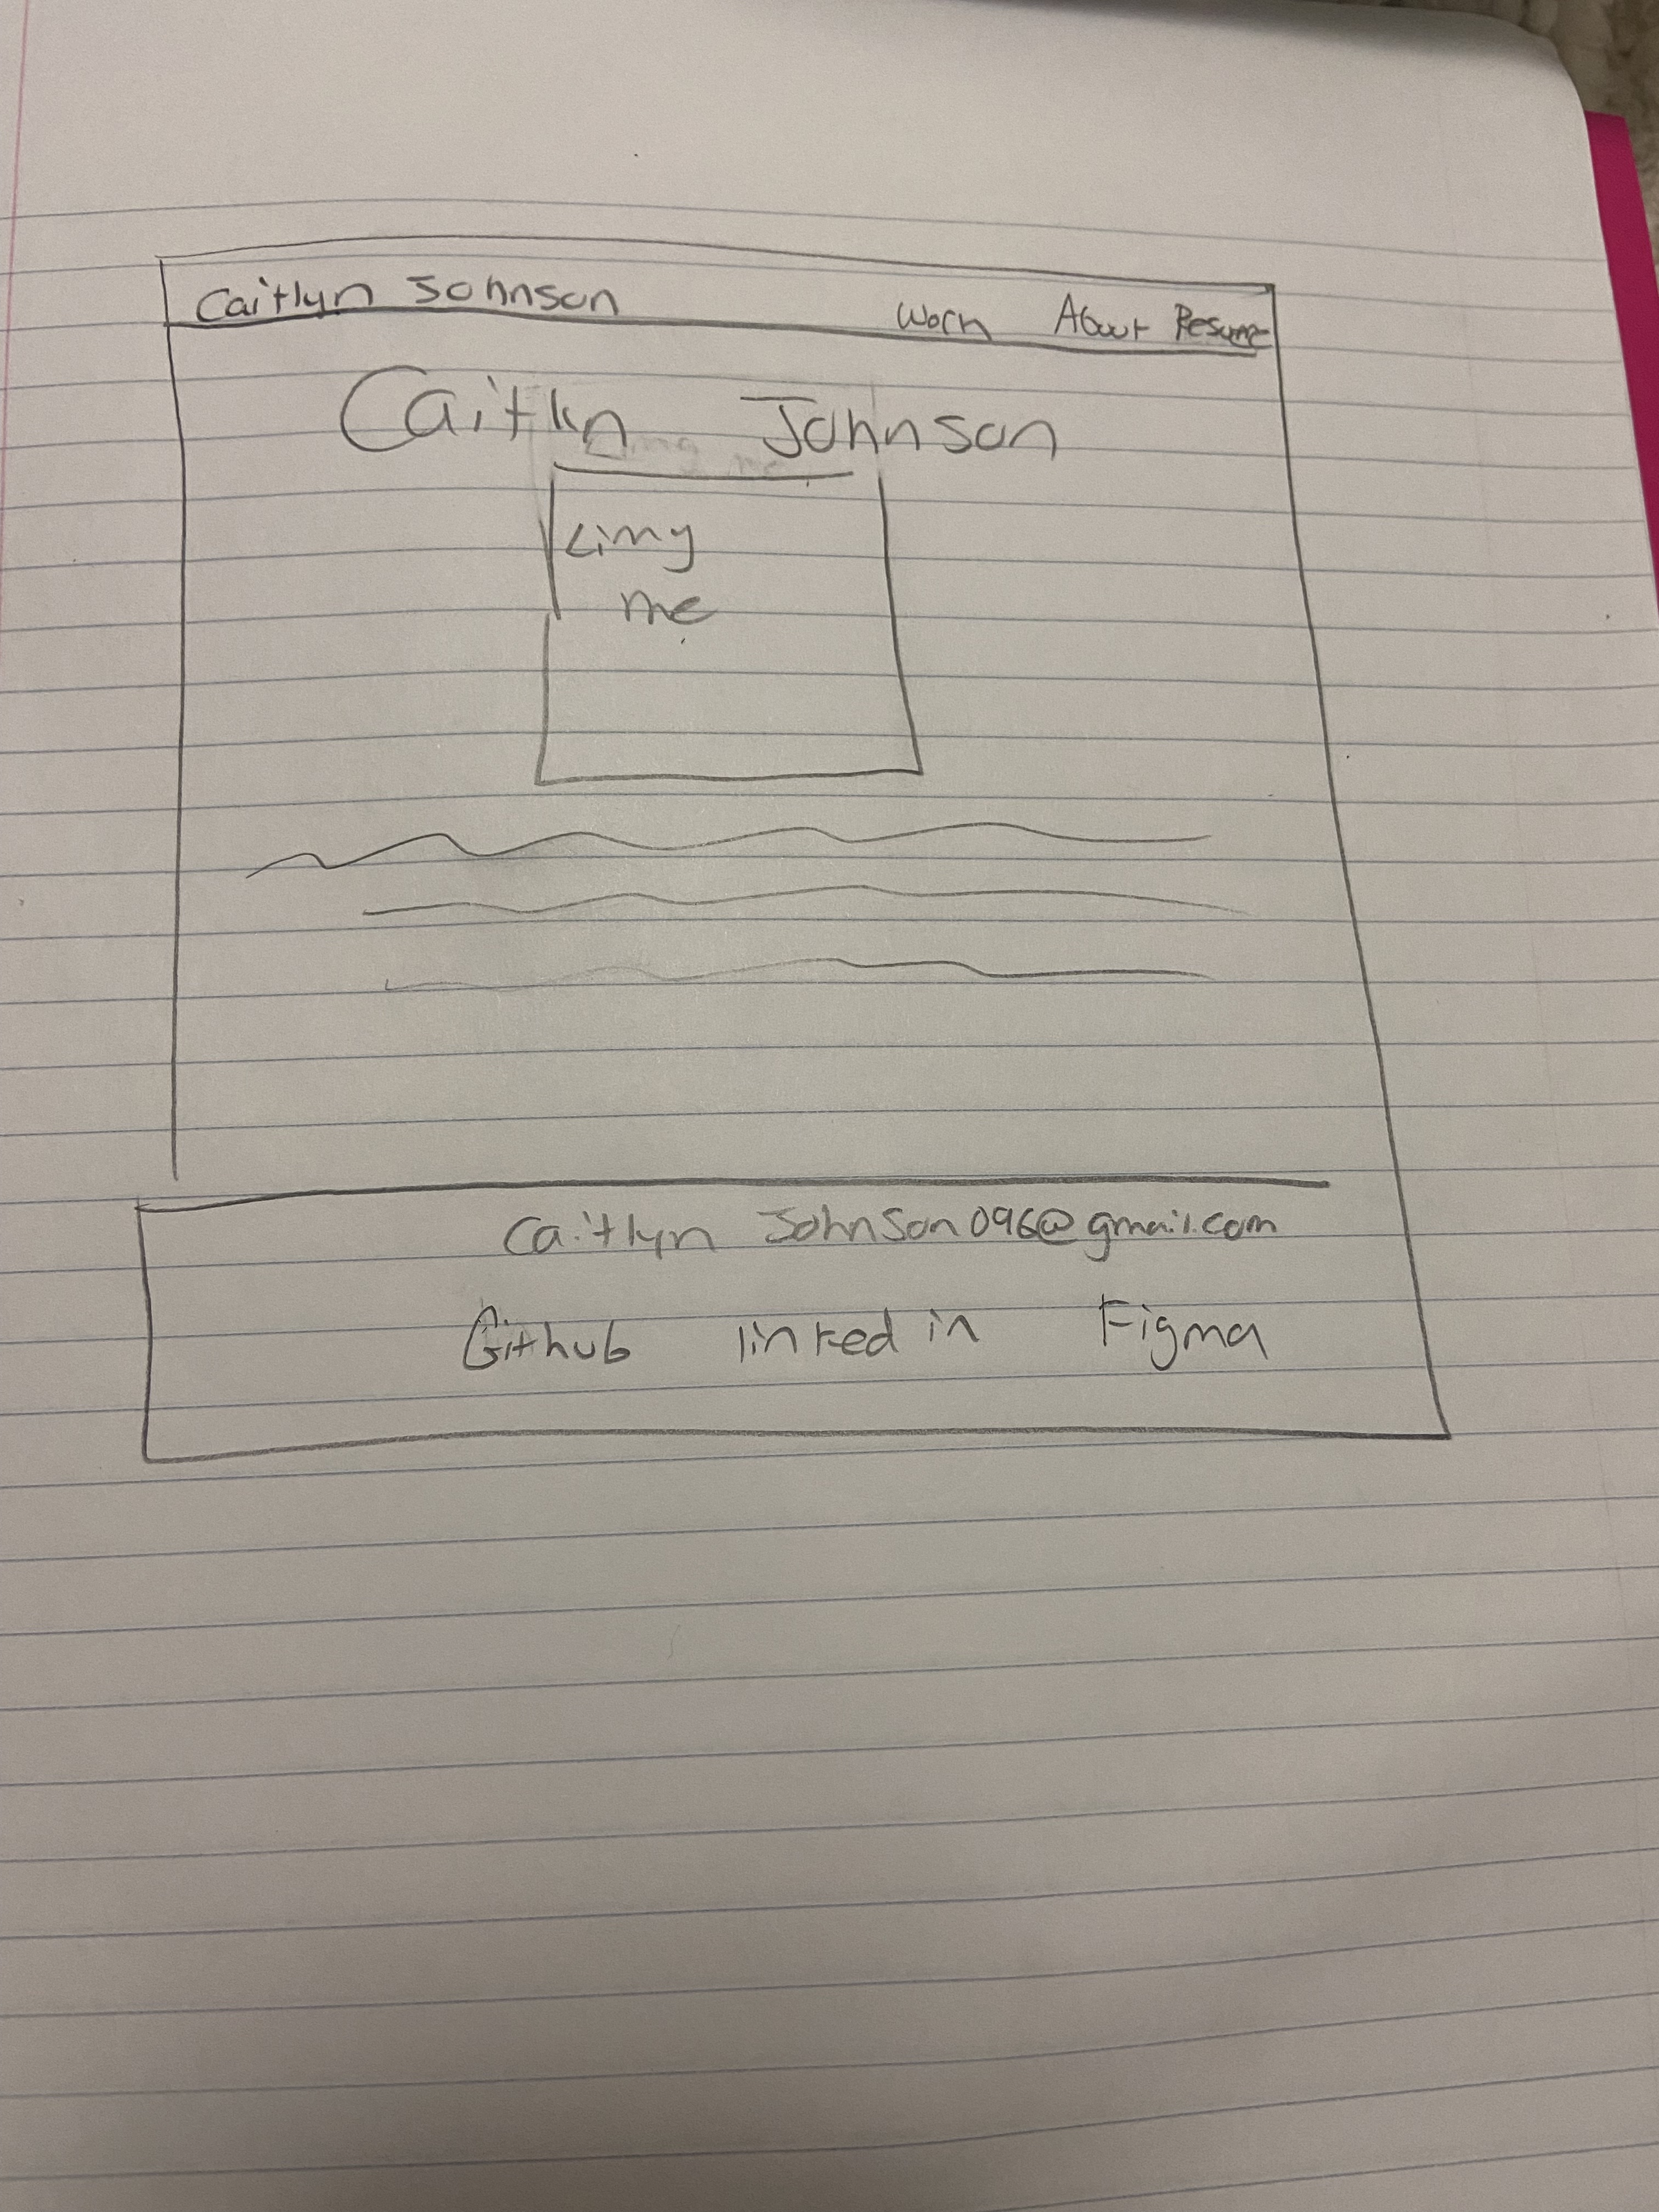 Caitlyn Johnson
Work About Resume
Caitlyn Johnson
<img
me
Caitlyn Johnson096@gmail.com
Github linked in Figma